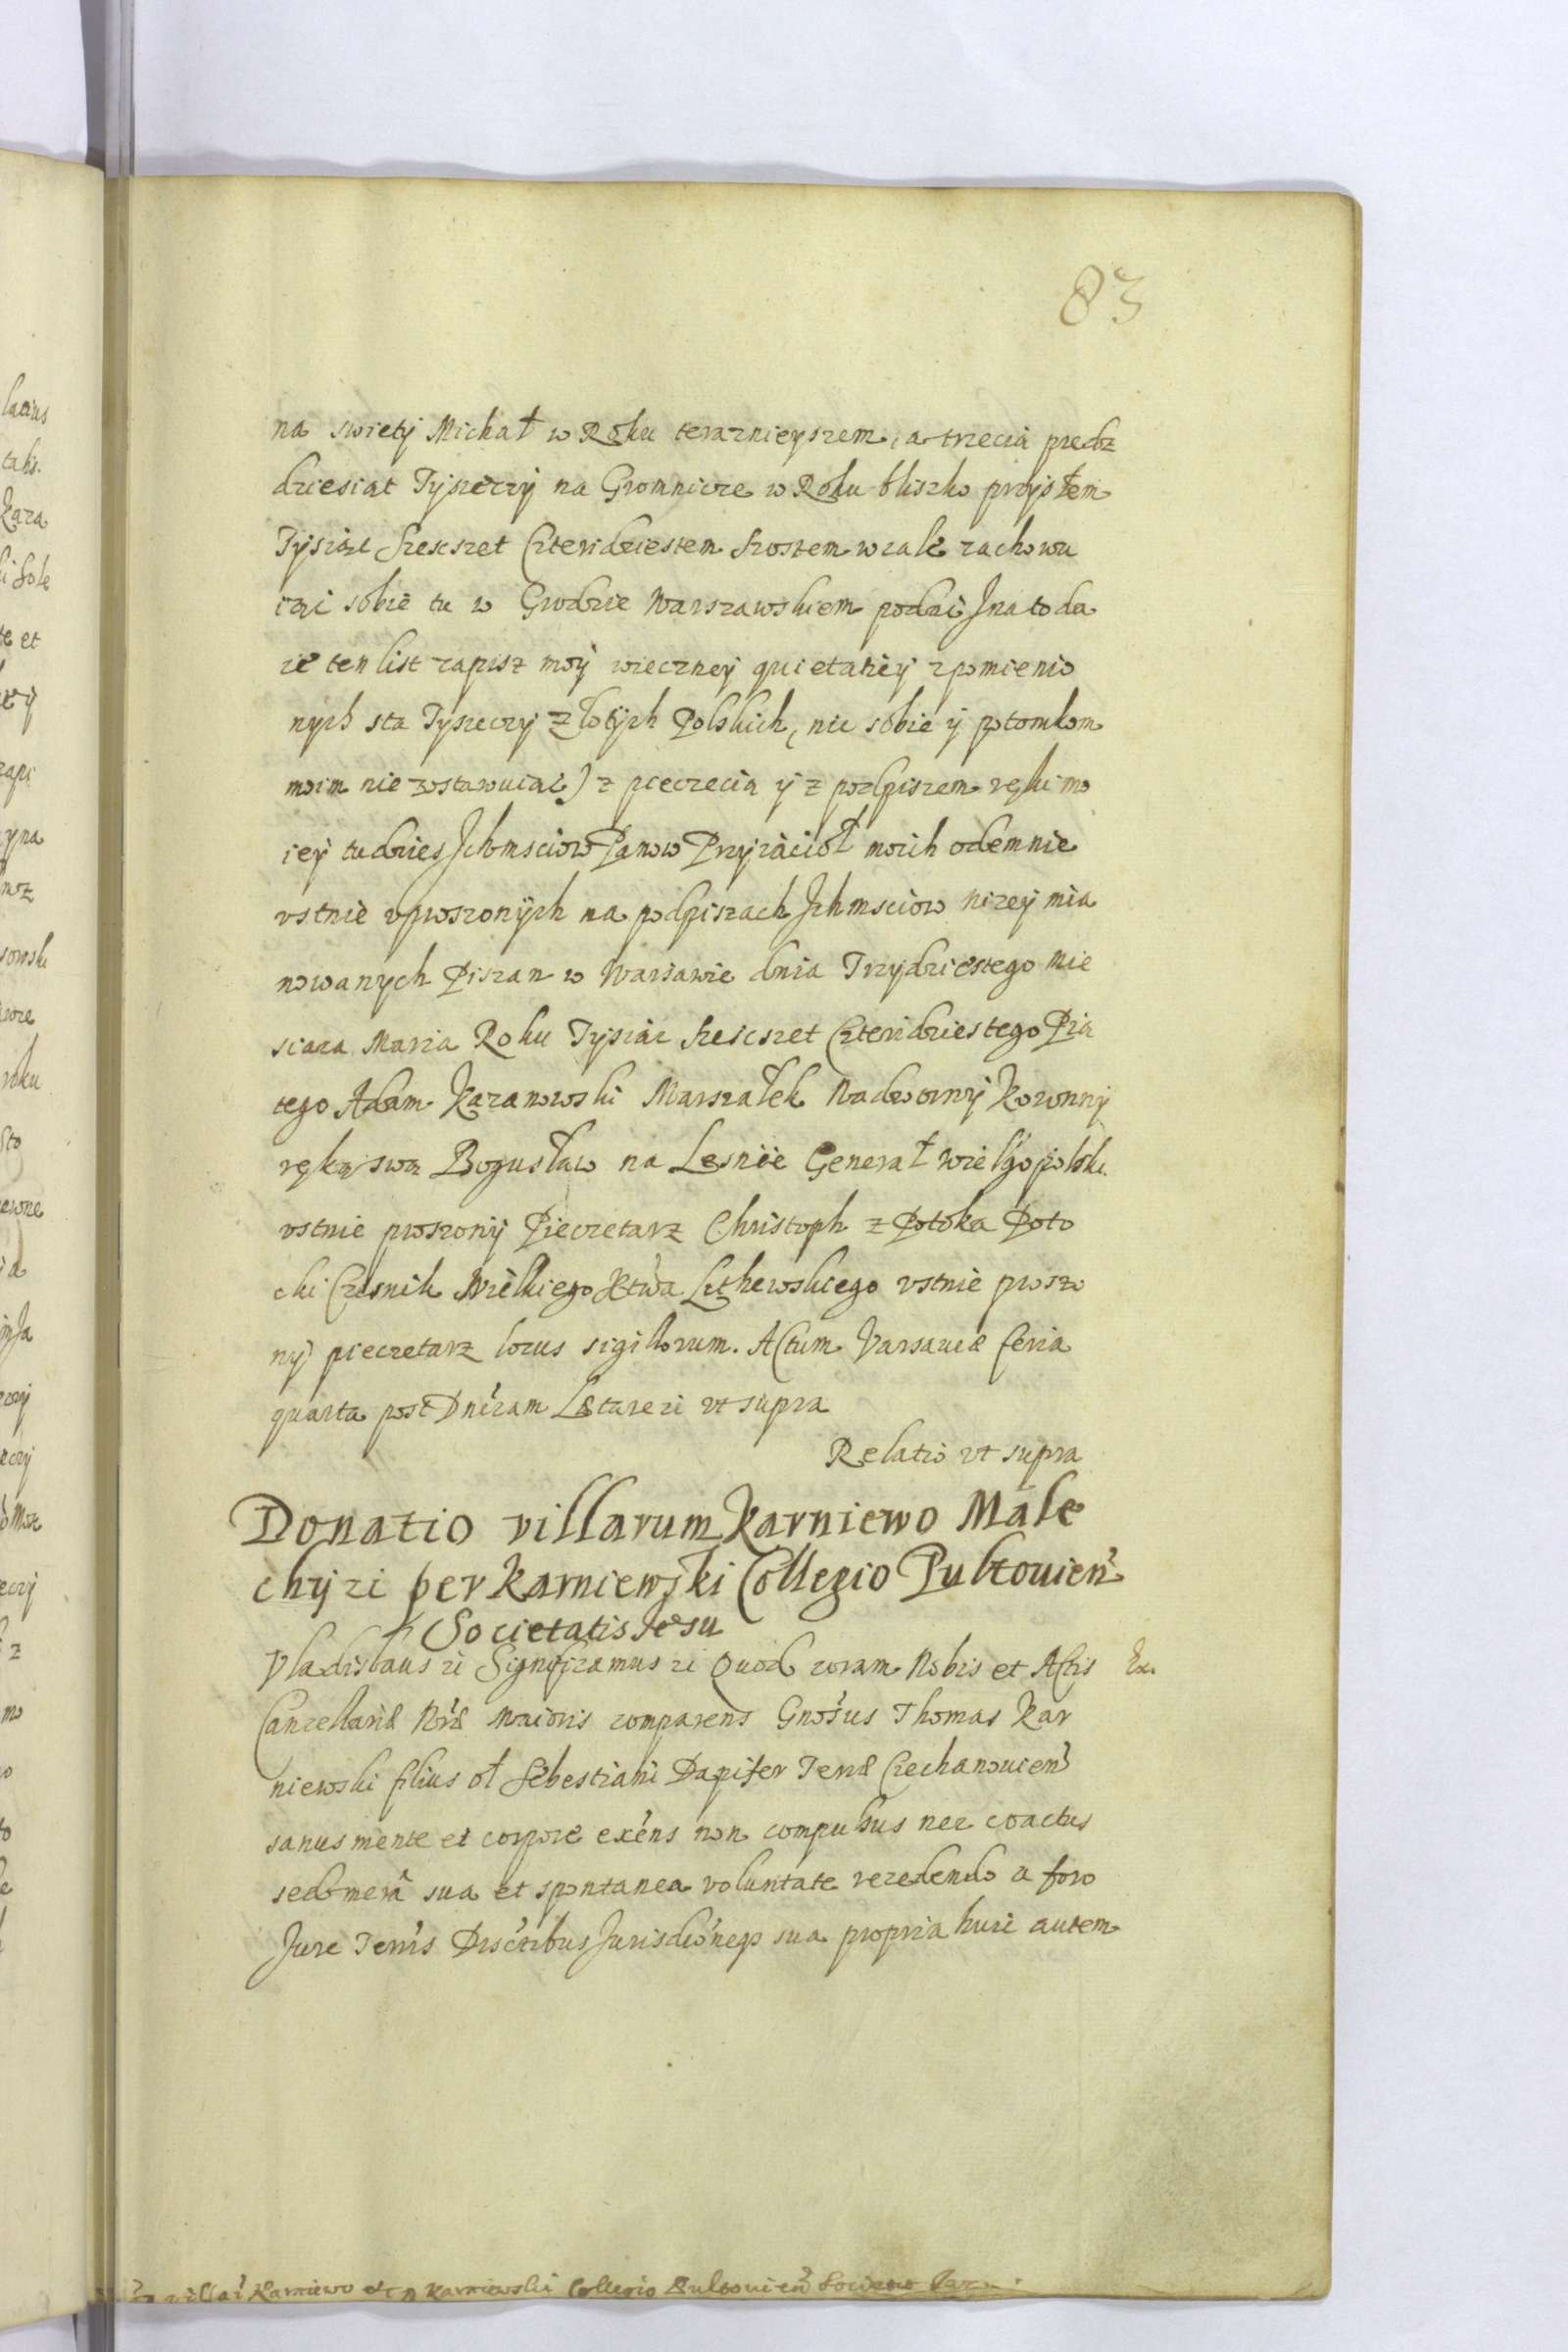 83
na swiety Michał w Roku teraznieyszem, a trzecia piedz
dziesiat Tysieczy na Gromnicze w Roku blisko przysłem
Tysiac Szescset Czteridziestem szostem wcale zachowu
iąci sobie tu w Grodzie Warszawskiem podaię Jnatoda
ie ten list zapisz moy wieczney quietatiey zpomienio
nych sta Tysieczy złotych Polskich, (nic sobie y potomkom
moim nie zostawuiac) z pieczecia y z podpiszem ręki mo
iey tudzies Jchmsciow Panow Przyiacioł moich odemnie
ustnie uproszonych na podpiszach Jchmsciow nizey mia
nowanych Piszan w Warsawie dnia Trzydziestego mie
siaca Marca Roku Tysiac Szescset Czteridziestego Pia
tego Adam Kazanowski Marszałek Nadworny Koronny
ręką swą Bogusław na Lesnie Generał Wielgopolski
ustnie proszony Pieczetarz Christoph z Potoka Poto
cki Czesnik Wielkiego Xtwa Lithewskiego ustnie proszo
ny pieczetarz locus sigillorum. Actum Varsaviæ feria
quarta post Dnicam Lætare zc ut supra
Relatio ut supra
Donatio villarum Karniewo Male
chy zc per Karniewski Collegio Pultovien
Societatis Jesu
Vladislaus zc Significamus zc Quod coram Nobis et Actis
Ex.
Cancellariæ Nræ Maioris comparens Gnosus Thomas Kar
niewski filius ol Sebestiani Dapifer Terræ Czechanovien
sanus mente et corpore exens non compulsus nec coactus
sed mera sua et spontanea voluntate recedendo a foro
Jure Terris Disctibus Jurisdioneqs sua propria huic autem
villar Karniewo etc p Karniewski Collegio Pultovien